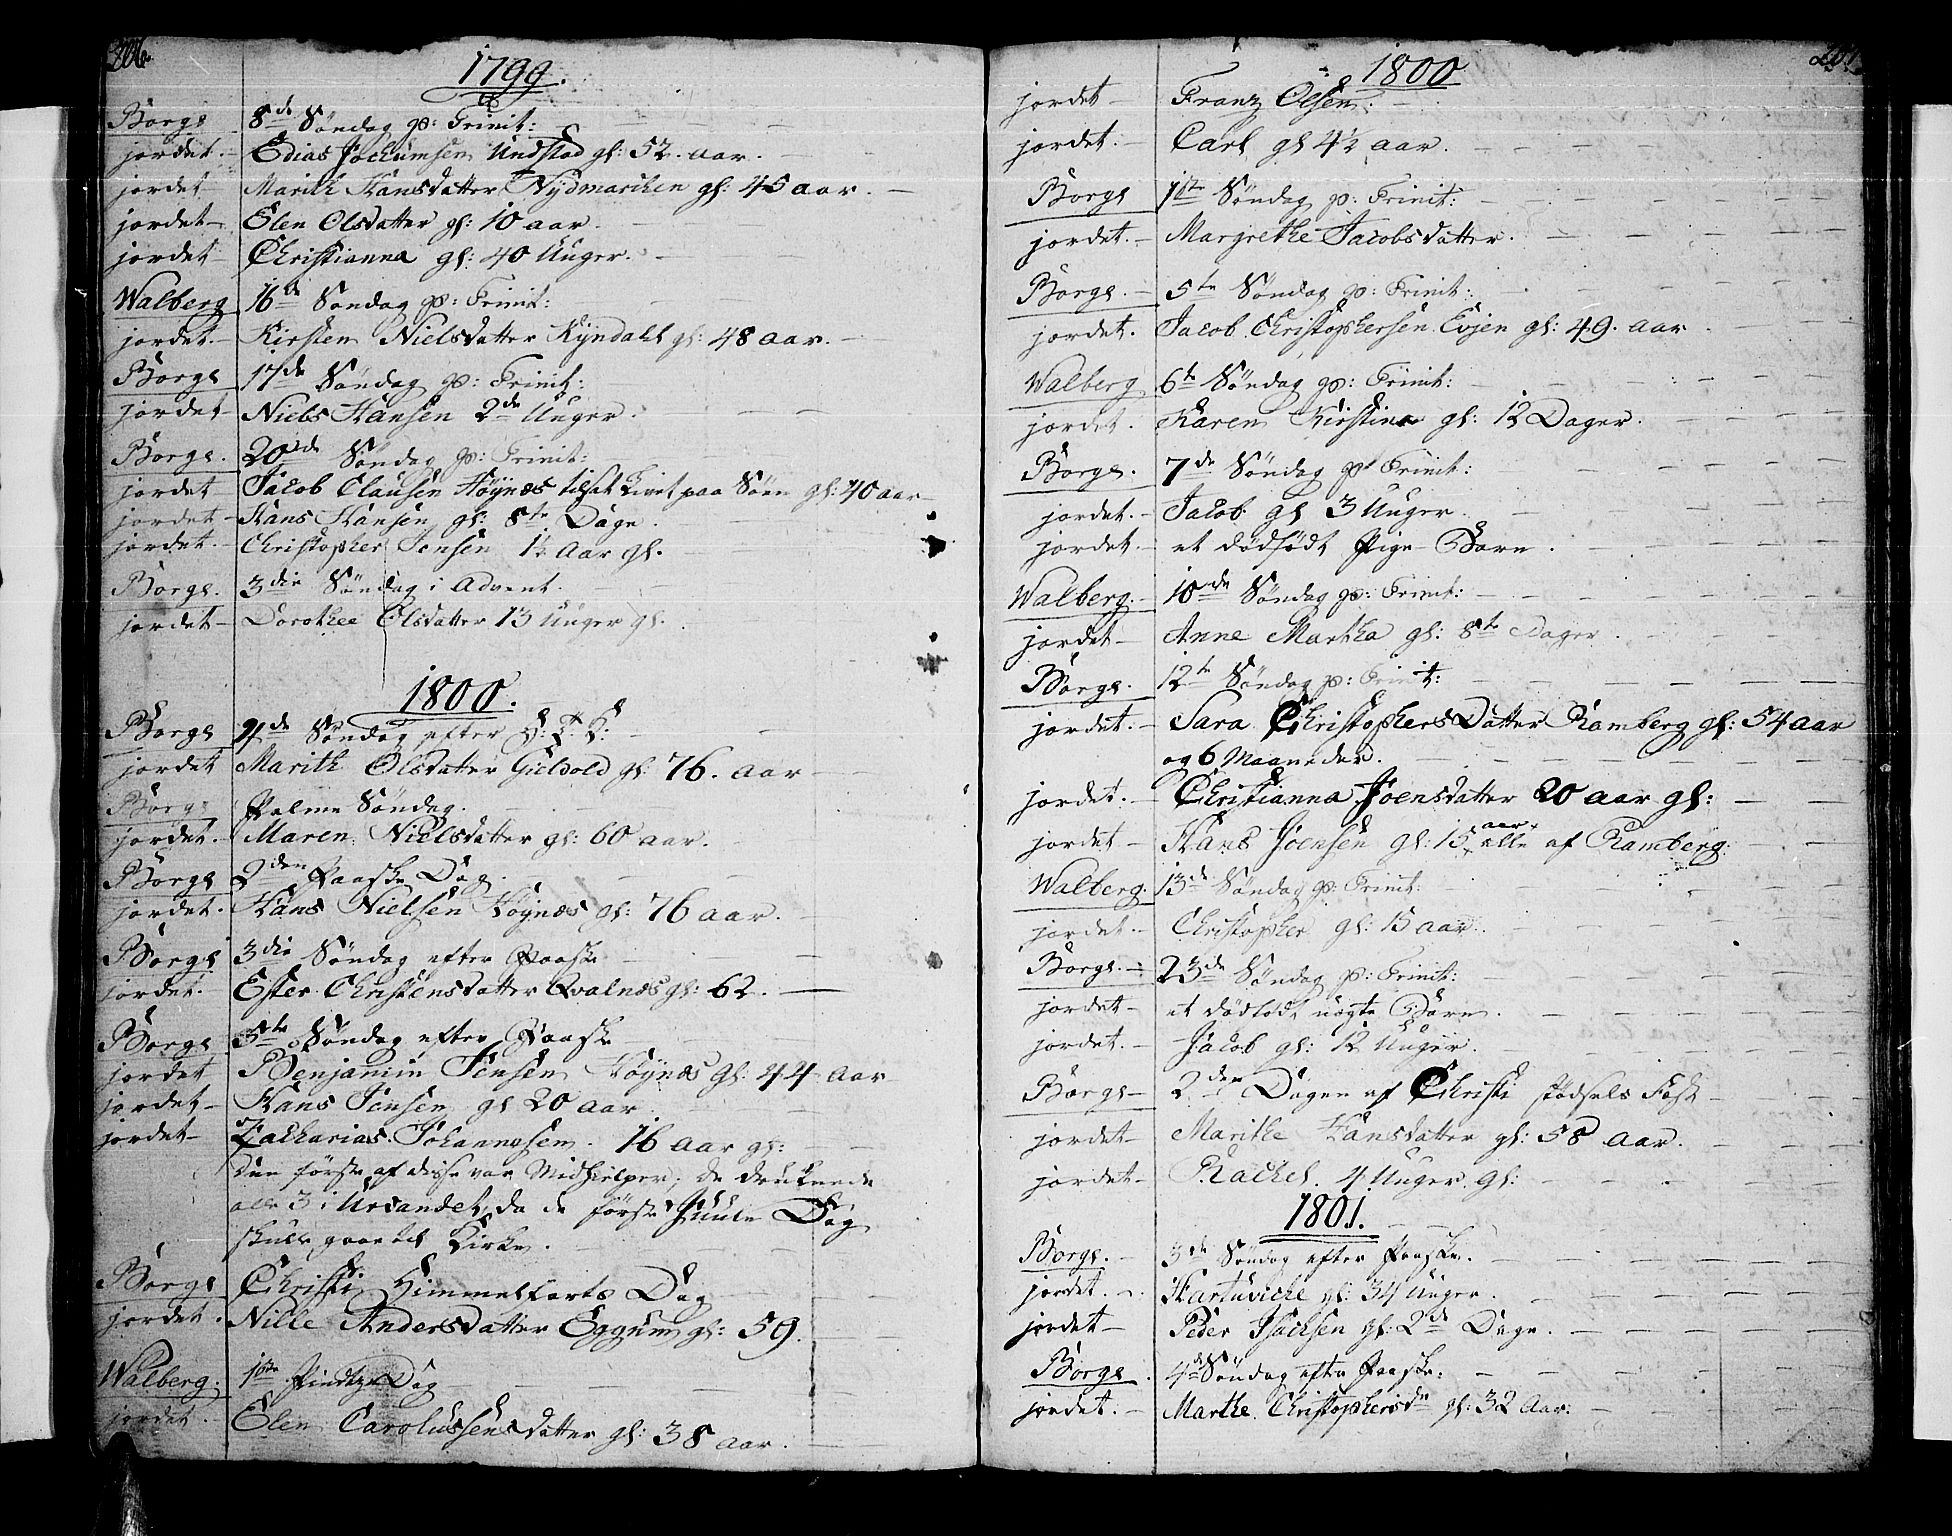 206.
1799.
Borge 8de Søndag p: Trinit:
jordet. Edias Jochumsen Undstad gl: 52. aar.
jordet Marith Hansdatter Nydmarchen gl: 45 aar.
jordet Elen Olsdatter gl: 10 aar.
jordet Christianna gl: 40 Uuger.
Walberg 16de Søndag p: Trinit:
jordet. Kirsten Nielsdatter Kyndahl gl: 48 aar.
Borge 17de Søndag p: Trinit:
jordet Niels Hansen 2de Uuger.
Borge. 20de Søndag p: Trinit:
jordet Jacob Clausen Høynæs tilsat Livet paa Søen gl: 40 aar
jordet Hans Hansen gl: 8te Dage.
jordet. Christopher Jensen 1½ Aar gl.
Borge. 3die Søndag i Advent.
jordet Dorothee Olsdatter 13 Uuger gl.
1800.
Borge 4de Søndag efter H: 3 K:
jordet Marith Olsdatter Gieldold gl: 76. aar
Borge Palme Søndag.
jordet. Maren Nielsdatter gl: 60 aar.
Borge 2den Paaske Dag.
jordet. Hans Nielsen Høynæs gl: 76 aar.
Borge 3die Søndag efter Paaske
jordet. Ester Christensdatter Qvalnæs gl: 62.
Borge 5te Søndag efter Paaske
jordet Benjamin Jensen Høynæs gl: 44 aar
jordet Hans Jensen gl 20 aar
jordet Zacharias Johannesen. 16 aar gl:
Den første af disse var Medhielper; de druknede
alle 3 i Ursandet, da de første Juule Dag
skulle gaae til Kirke.
Borge Christi Himmelfarts Dag
jordet. Nille Andersdatter Eggum gl: 59.
Walberg. 1ste Pindtze Dag
jordet. Elen Carolussensdatter gl: 38 aar.
207
1800
jordet Franz Olsen.
jordet. Carl gl 4½ aar.
Borge 1ste Søndag p: Trinit:
jordet. Margrethe Jacobsdatter.
Borge. 5te Søndag p: Trinit:
jordet. Jacob Christophersen Evjen gl: 49. aar
Walberg 6te Søndag p: Trinit:
jordet. Karen Kirstina gl: 12 Dager.
Borge. 7de Søndag p: Trinit:
jordet. Jacob gl 3 Uuger.
jordet. et dødfødt Pige-Barn.
Walberg. 10de Søndag p: Trinit:
jordet Anne Martha gl: 8te Dager.
Borge. 12te Søndag p: Trinit:
jordet. Sara ChristophersDatter Ramberg gl: 54 aar
og 6 Maaneder.
jordet. Christianna Joensdatter 20 aar gl:
jordet Hans Joensen gl: 15 aar alle af Ramberg.
Walberg. 13de Søndag p: Trinit:
jordet. Christopher gl: 15 aar.
Borge. 23de Søndag p: Trinit:
jordet et dødfødt uægte Barn.
jordet. Jacob gl: 12 Uuger.
Borge 2den Dagen af Christi Fødsels Fest
jordet Marithe Hansdatter gl: 58 aar.
jordet Rachel. 4 Uuger gl:
1801.
Borge. 3de Søndag efter Paaske.
jordet. Hartuviche gl: 34 Uuger.
jordet Peder Isachsen gl: 2de Dage.
Borge. 4de Søndag efter Paaske:
jordet. Marthe Christophersdr gl: 32 Aar: